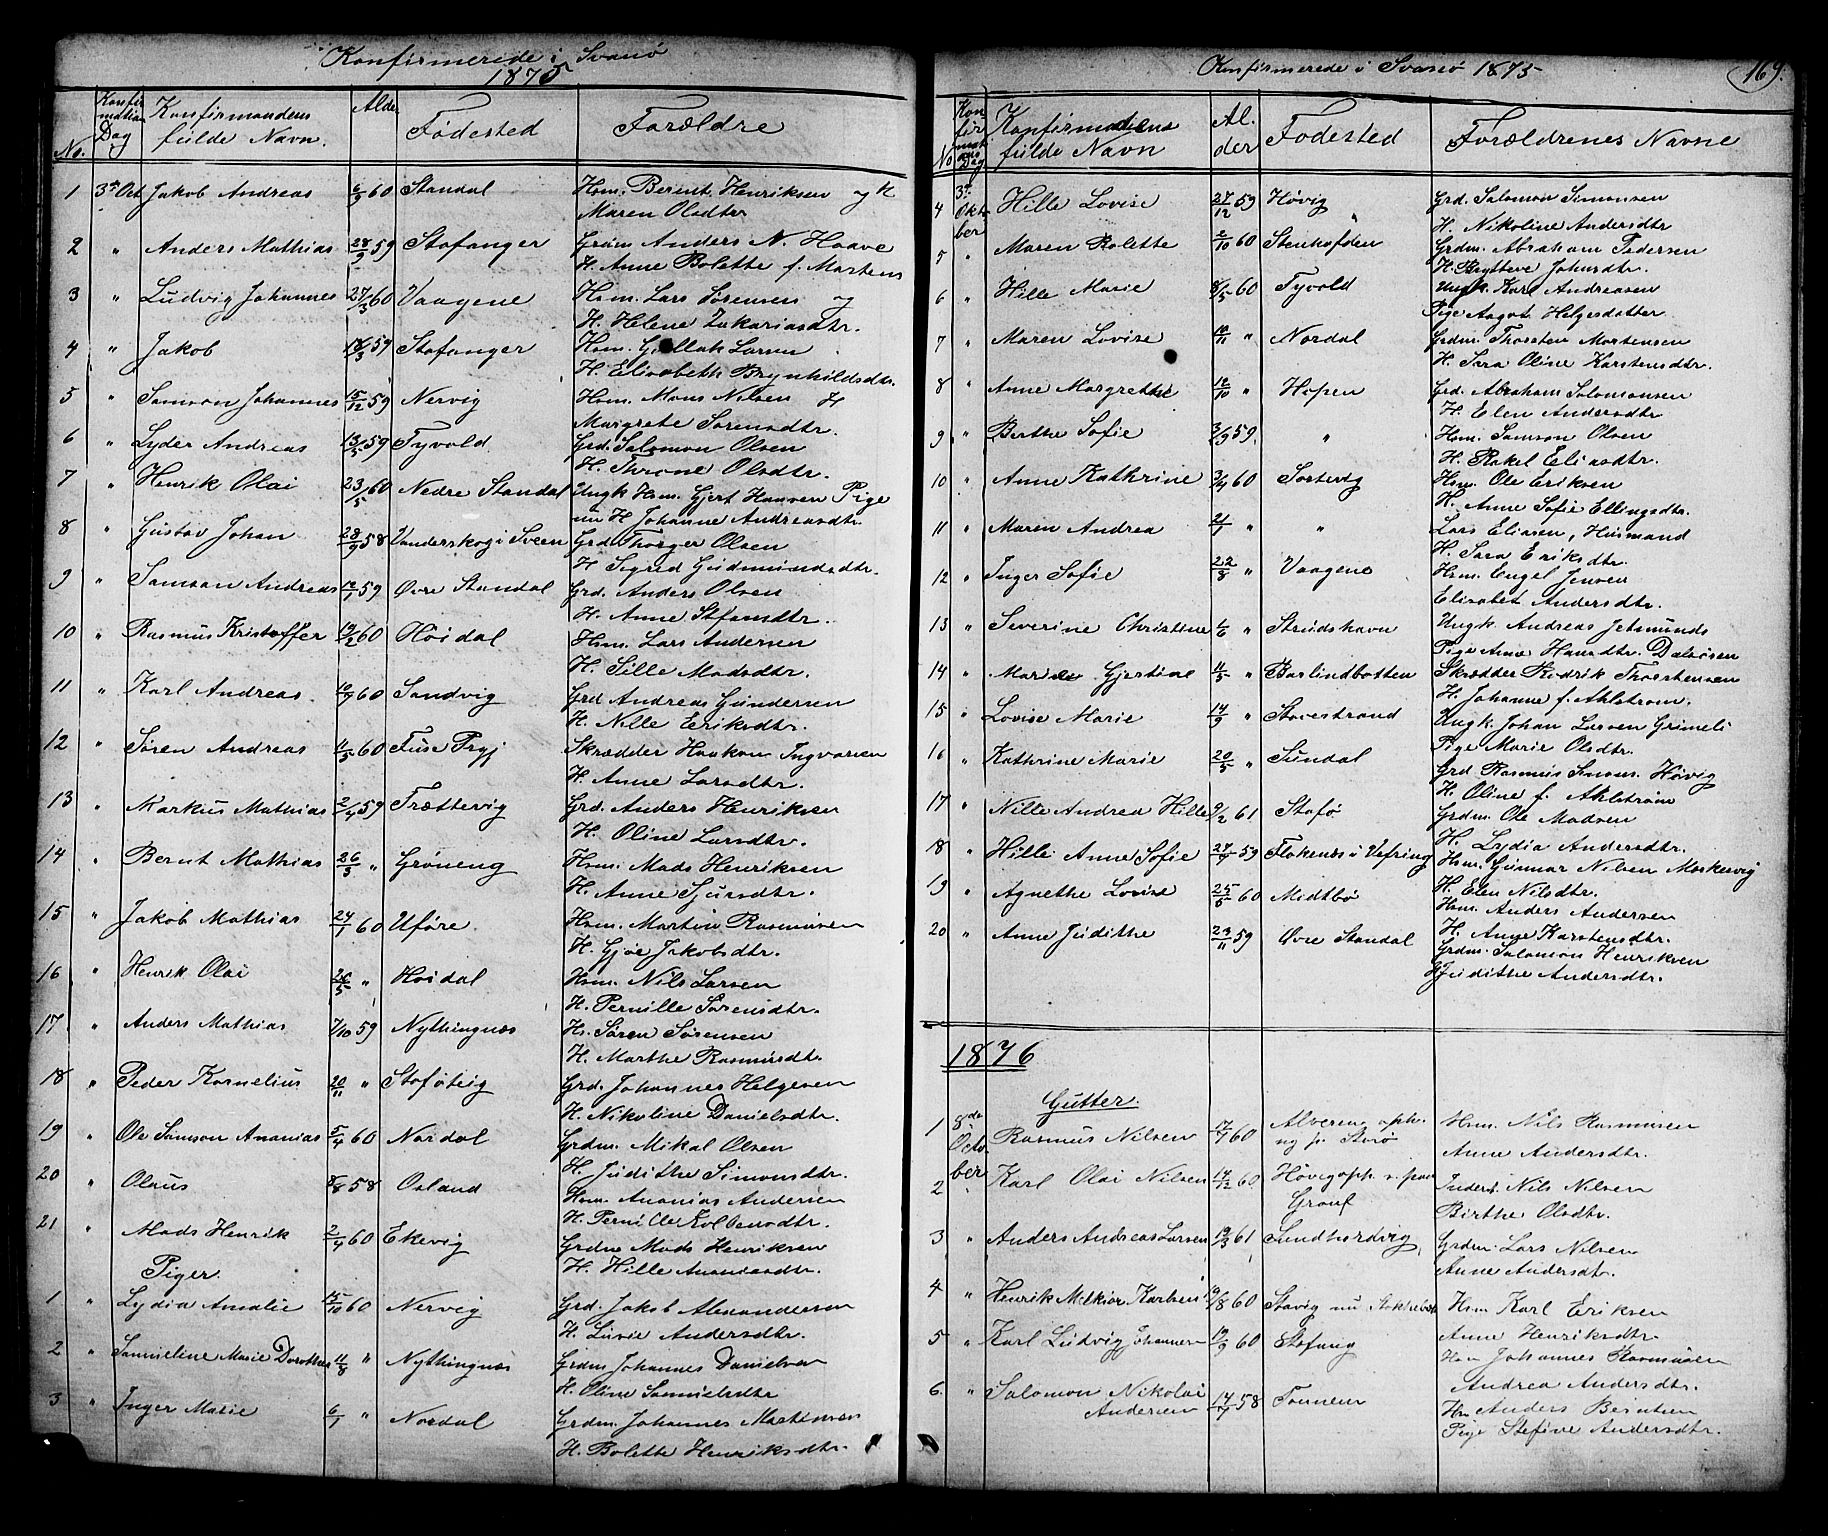 Konfirmerede i Svanø
1875
No. Konfirmations Dag Konfirmandens fulde Navn. Alder Fødested Forældre
1 3die Oct Jakob Andreas 6/9 60 Standal Hsm. Bernt Henriksen og H
Maren Olsdtr
2 " Anders Mathias 28/9 59 Stafanger Grdm Anders N. Haave
H. Anne Bolette f. Martens
3 " Ludvig Johannes 27/3 60 Vaagene Hsm. Lars Sørensen og
H. Helene Zakariasdtr.
4 " Jakob 59 Stafanger Hsm. Larsen
H. Elisabeth Brynhildsdtr.
5 " Samson Johannes 15/12 59 Nervig Hsm. Mons Nilsen H
Margrete Sørensdtr.
6 " Lyder Andreas 13/5 59 Tyvold Grd. Salomon Olsen
H. Throne Olsdtr.
7 " Henrik Olai 23/5 60 Nedre Standal Ungk Hsm. Gjert Hansen Pige
nu H Johanne Andreasdtr.
8 " Gustav Johan 28/9 58 Vanderskog i Sveen Grd. Thorger Olsen
H Sigrid Gudmundsdtr.
9 " Samson Andreas 59 Øvre Standal Grd. Anders Olsen
H. Anne Stefansdtr.
10 " Rasmus Kristoffer 60 Høidal Hsm. Lars Andersen
H. Sille Madsdtr.
11 " Karl Andreas 10/9 60 Sandvig Grd Andreas Gundersen
H. Nille Eriksdtr.
12 " Søren Andreas 11/5 60 Fuse Prgj Skrædder Haakon Ingvarsen
H. Anne Larsdtr.
13 " Markus Mathias 2/4 59 Trættevig Grd. Anders Henriksen
H. Oline Larsdtr.
14 " Bernt Mathias 26/3 " Grøneng Hsm. Mads Henriksen
H. Anne Sjursdtr.
15 " Jakob Mathias 24/1 60 Uføre. Hsm. Martin Rasmusen
H. Gjøe Jakobsdtr.
16 " Henrik Olai 26/5 " Høidal Hsm. Nils Larsen
H. Pernille Sørensdtr.
17 " Anders Mathias 7/10 59 Nythingnæs Hs. Søren Sørensen
H. Marthe Rasmusdtr.
18 " Peder Kornelius 20/11 " Staføteig Grd. Johannes Helgesen
H. Nikoline Danielsdtr.
19 " Ole Samson Ananias 5/4 60 Nordal Grdm. Mikal Olsen
H. Judithe Simonsdtr.
20 " Olaus 8/8 58 Osland Hsm. Ananias Andersen
H. Pernille Kolbensdtr.
21 " Mads Henrik 2/4 60 Ekevig Grdm Mads Henriksen
H. Hille Ananiasdtr.
Piger.
1 " Lydia Amalie 15/10 60 Nervig Grd. Jakob Alexanderson
H. Lusie Andersdtr.
2 " Samueline Marie Dorothea 11/8 " Nythingnæs Grdm Johannes Danielsen
H. Oline Samuelsdtr
3 " Inger Marie 6/1 " Nordal Grdm. Johannes Martinsen
H. Bolette Henriksdtr.
Konfirmerede i Svanø 1875
169.
No Konfirmations Dag Konfirmandens fulde Navn Alder Fødested Forældrenes Navne
4 3die Oktber Hille Lovise 27/12 59 Høvig Grd. Salomon Simonsen
H. Nikoline Andersdtr
5 " Maren Bolette 2/10 60 Stenhofden Grdm. Abraham Pedersen
H. Brytteve Johnsdtr.
6 " Hille Marie 8/5 60 Tyvold Ungk. Karl Andreasen
Pige Aagot Helgesdatter
7 " Maren Lovise 10/11 " Nordal Grdm. Thorsten Mortensen
H. Sara Oline Karstensdtr.
8 " Anne Margrethe 12/10 " Hopen Grd. Abraham Salomonsen
H. Elen Andersdtr
9 " Berthe Sofie 3/9 59. " Hsm. Samson Olsen
H. Rakel Eliasdtr.
10 " Anne Kathrine 3/4 60 Sørtevig Hsm. Ole Eriksen
H. Anne Sofie Ellingsdtr.
11 " Maren Andrea 21/1 " " Lars Eliasen, Husmand
H. Sara Eriksdtr.
12 " Inger Sofie 22/8 " Vaagene Hsm. Engel Jensen
Elisabet Andersdtr.
13 " Severine Christine 1/6 " Strudshavn Ungk. Andreas Jetmunds
Pige Anne Hansdtr. Dalsøsen
14 " Gjertine 11/5 " Barlindbotten Skrædder Thorstensen
H. Johanne f. Ahlstrøm.
15 " Lovise Marie 14/9 " Stavestrand Ungk. Johan Larsen Grimeli
Pige Marie Olsdtr.
16 " Kathrine Marie 20/5 " Sundal Grd Rasmus Simons. Høvig
H. Oline f. Ahlstrøm
17 " Nille Andrea Hille 9/2 61 Stafø Grdm. Ole Madsen
H. Lydia Andersdtr.
18 " Hille Anne Sofie 27/9 59 Flokenæs i Vefring Hsm. Gunnar Nilsen Markevig
H. Elen Nilsdtr.
19 " Agnethe Lovise 25/5 60 Midtbø Hsm. Anders Andersen
H. Anne Karstensdtr.
20 " Anne Judithe 23/11 59 Øvre Standal Grdm. Salomon Henriksen
H Judithe Andersdtr.
1876
Gutter.
1 8de October Rasmus Nilsen 17/7 60 Alveren oph. Hsm. Nils Rasmusen
Anne Andersdtr.
2 " Karl Olai Nilsen 14/12 60 Høvig oph. Inderst. Nils Nilsen
Birthe Olsdtr.
3 " Anders Andreas Larsen 19/3 61 Sundhordvig, Grdm. Lars Nilsen
Anne Andersdtr.
4 " Henrik Melkior Karlsen 60 Stavig nu Hsm Karl Eriksen
Anne Henriksdtr.
5 " Karl Ludvig Johannesen 19/9 60 Stafang Hsm Johannes Rasmusen
Andrea Andersdtr.
6. " Salomon Nikolai Andersen 58 Tonneen Hsm Anders Berntsen
Pige Stefine Andersdtr.